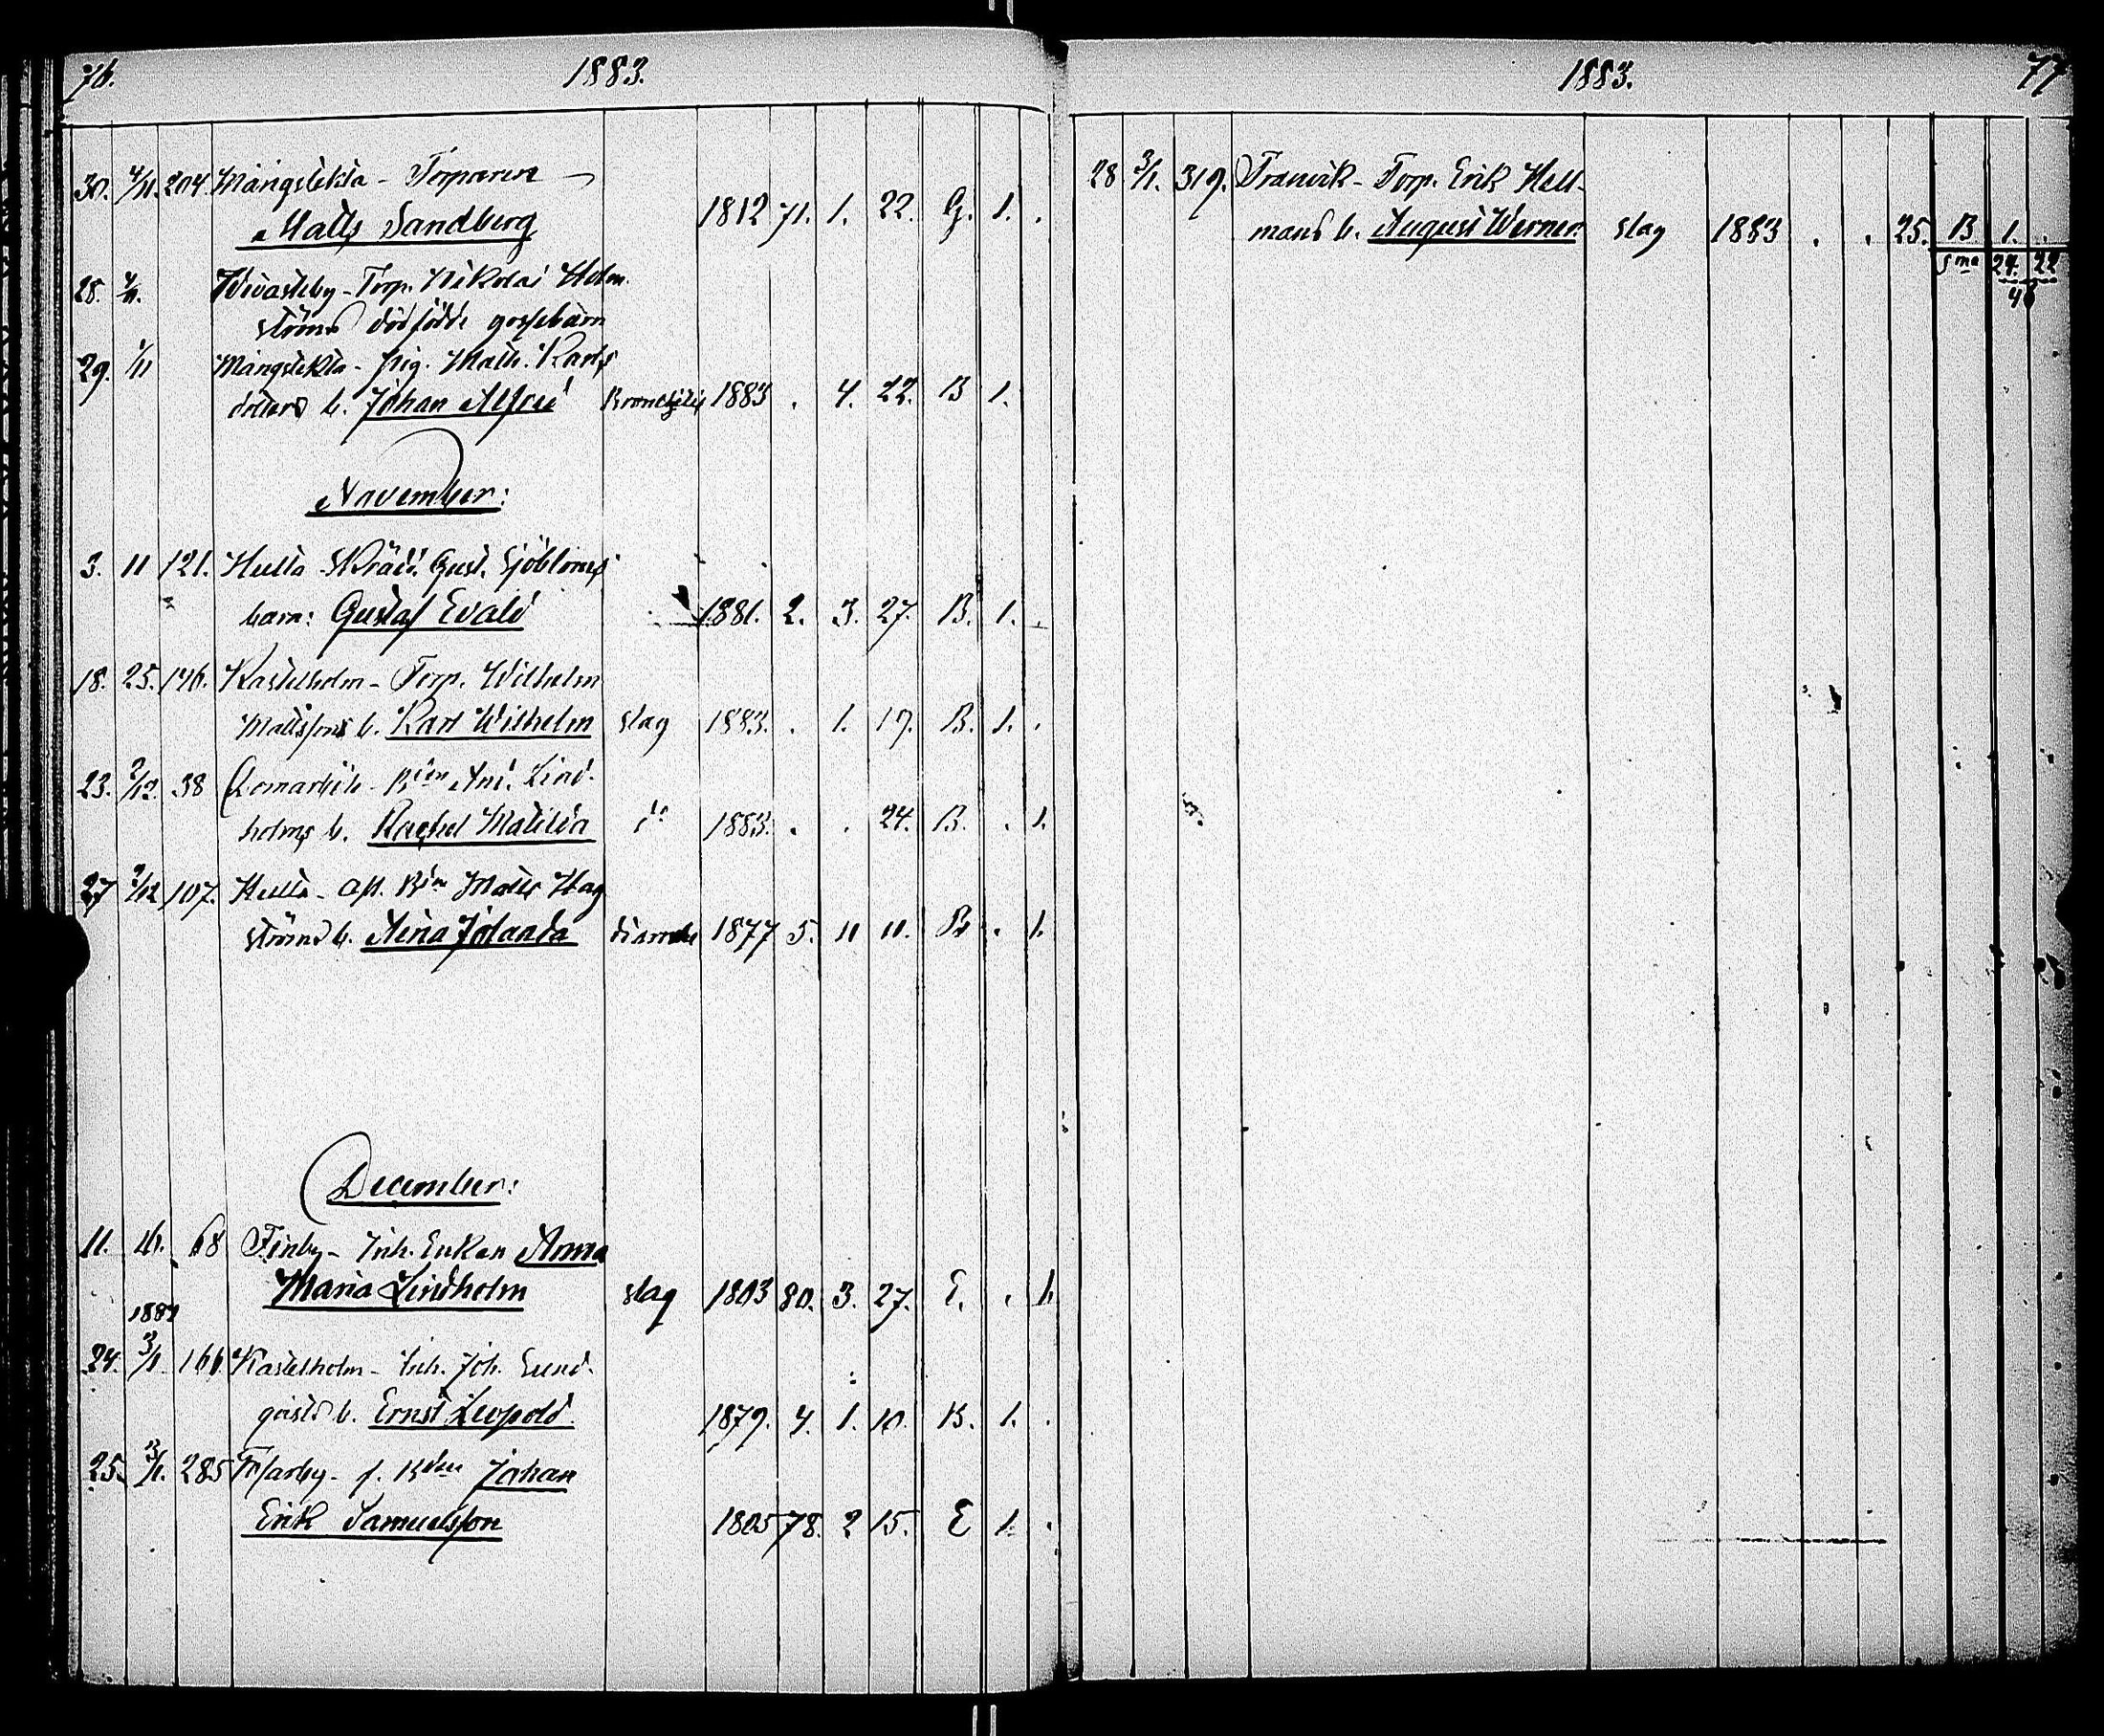 76. 1883.
30. 4/11. 204. Mångstekta - Torparen
Matts Sandberg 1812 71. 1. 22. G. 1. .
28. 4/11. Wivasteby - Torp. Nikolai Holm-
ströms dödfödde gossebarn
29. 1/11 Mångstekta - pig. Math. Karls
dotters b. Johan Alfred Bronchitis 1883 . 4. 22. B 1.
November:
3. 11 121. Hulta - Skrädd. Gust. Sjöbloms
barn: Gustaf Evald 1881. 2. 3. 27. B. 1.
18. 25. 146. Kastelholm - Torp. Wilhelm
Mattssons b. Karl Wilhelm slag 1883. . 1. 17. B. 1. .
23. 2/12. 38 - Bdn And. Lind-
holms b. Rachel Matilda do 1883. . . 24. B. . 1.
27 2/12 107. Hulta - Bdn Matts Hag
ströms b. Jolanda 1877 5. 11 11. B. . 1.
December:
11. 16. 68 Finby - Inh. Enkan Anna
Maria Lindholm slag 1803 80. 3. 27. E. . 1.
1884
24. 3/1. 166 Kastelholm - Inh. Joh. Lund-
qvists b. Ernst Leopold 1879. 4. 1. 10. B. 1. .
25. 3/1. 285 - f. Bden Johan
Erik Samuelsson 1805 78. 2 15. E 1. .
1883. 77
28 3/1. 319. Tranvik - Torp. Erik Hell-
mans b. August Werner slag 1883 . . 25. B 1. .
Sma 24. 22
46